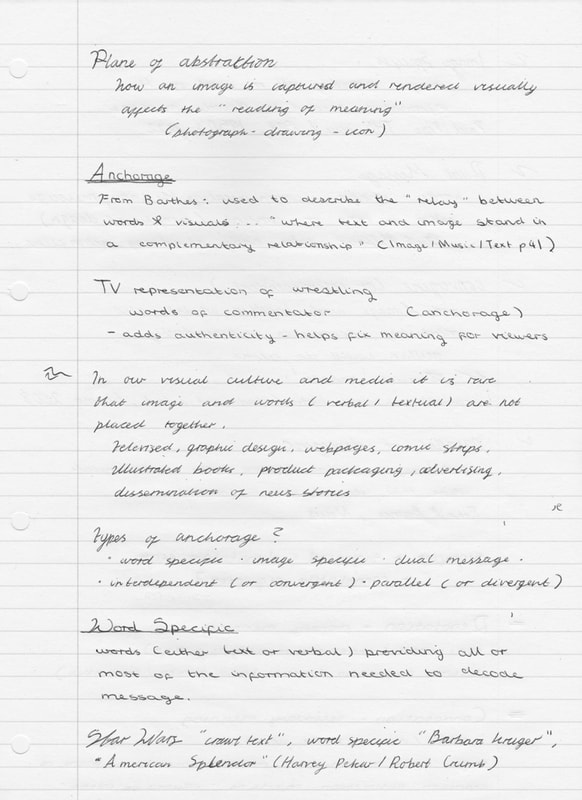 Plane of abstraktion
how an image is captured and rendered visually
affects the "reading of meaning"
(photograph - drawing - icon)
Anchorage
From Barthes: used to describe the "relay" between
words & visuals... "where text and image stand in
a complementary relationship" (Image/Music/Text p41)
TV representation of wrestling
words of commentator (anchorage)
- adds authenticity - helps fix meaning for viewers
In our visual culture and media it is rare
that image and words (verbal/textual) are not
placed together.
Televised, graphic design, webpages, comic strips,
illustrated books, product packaging, advertising,
dissemination of news stories
Types of anchorage?
· word specific · image specific · dual message ·
· interdependent (or convergent) · parallel (or divergent)
Word Specific
words (either text or verbal) providing all or
most of the information needed to decode
message.
Star Wars "crawl text", word specific "Barbara Kruger",
"American Splendor" (Harvey Pekar/Robert Crumb)